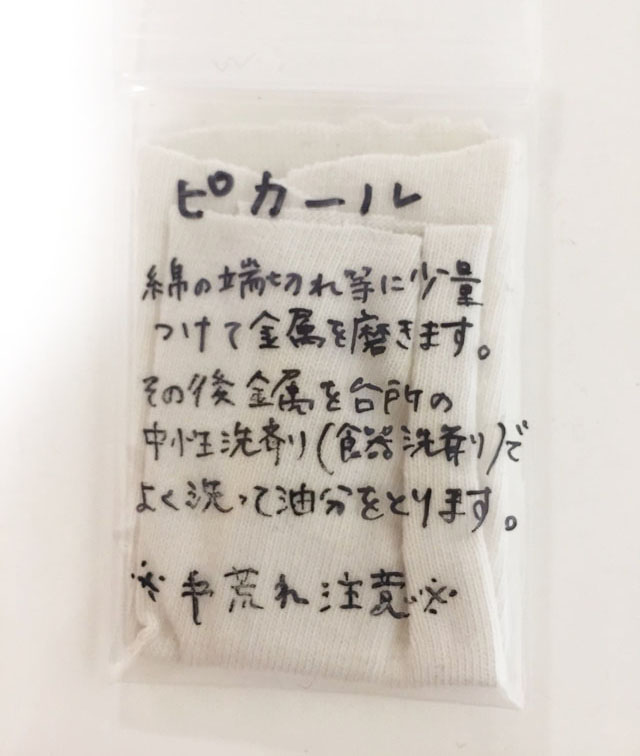 ピカール
綿の端切れ等に少量
つけて金属を磨きます。
その後金属を台所の
中性洗剤(食器洗剤)で
よく洗って油分をとります。
※手荒れ注意※